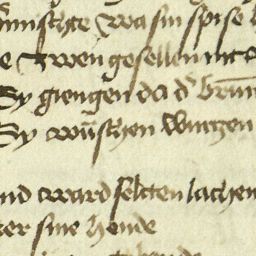 wa sin spise
e zwen gesellen mit
Sy giengen da d' brun
Sy wuschen wurtzen
nd ward selten lachen
er sine hende